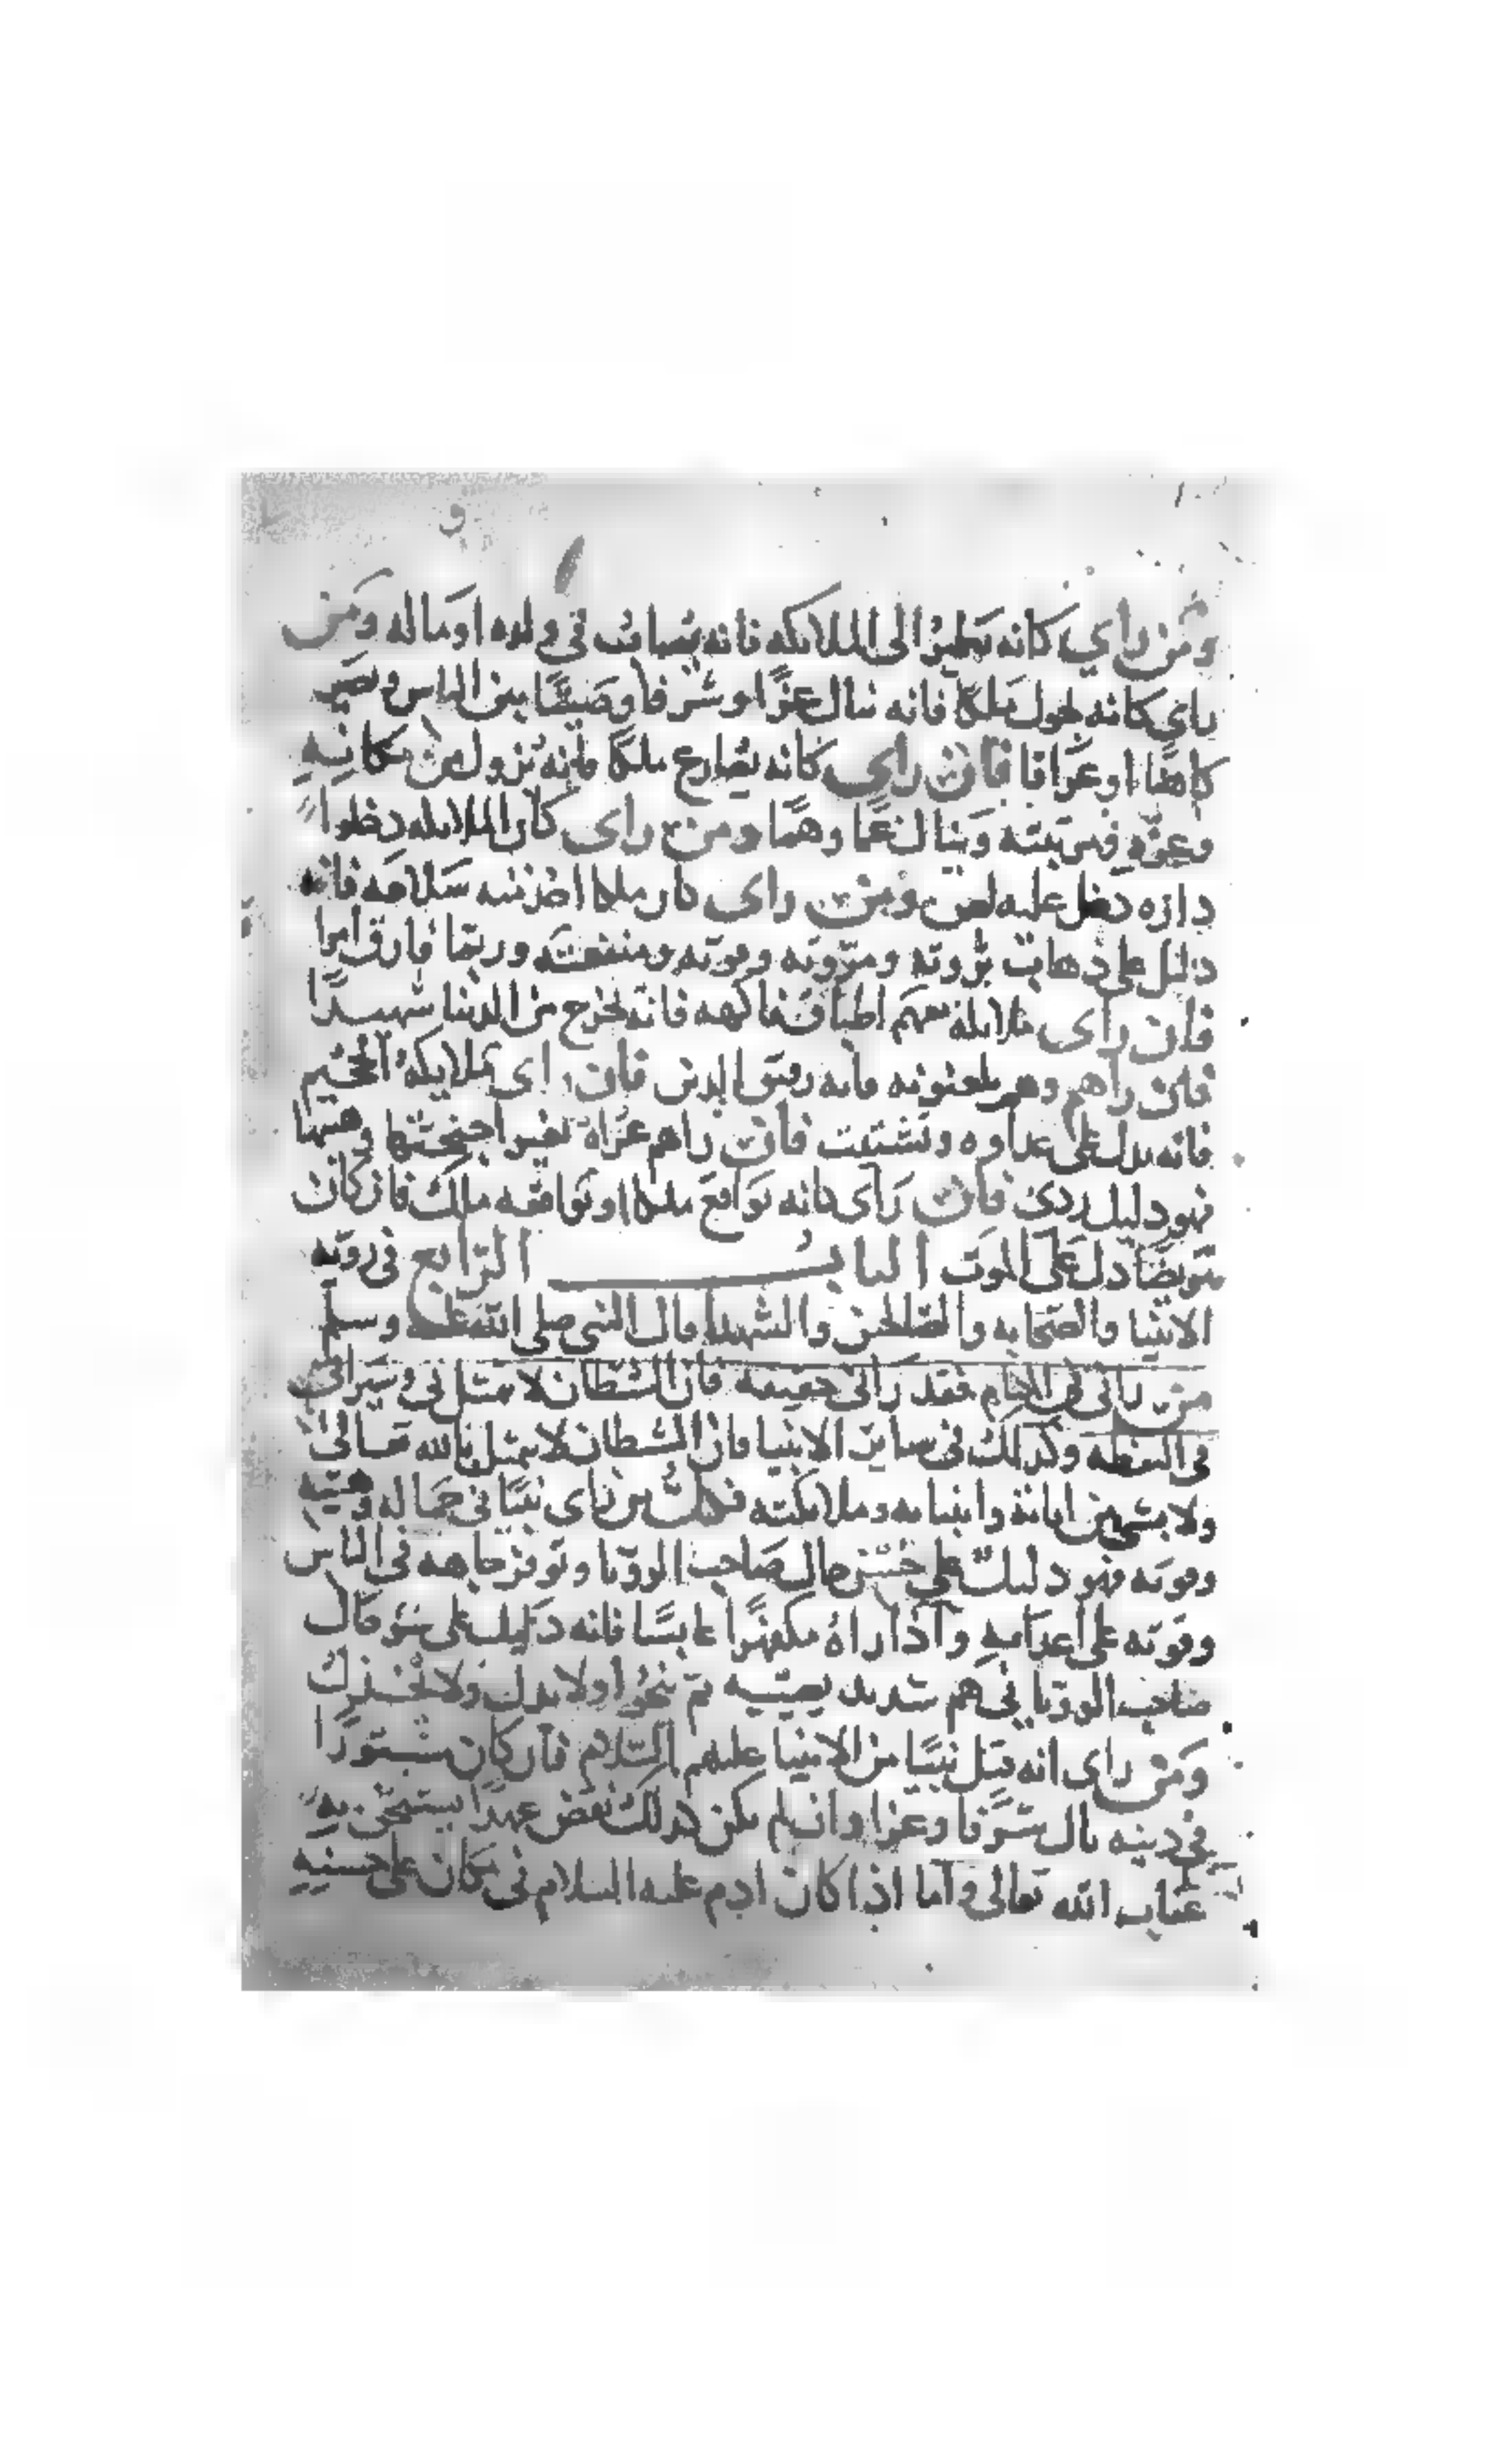 ومن راي كانه ينظر الى الملائكه فانه يصاب في ولده او ماله ومن
راي كانه يحول ملكا فانه ينال عزا وشرفا وصيتا بين الناس ويصير
كاهنا او عرافا فان راي كانه يصارع ملكا فانه يزول عن مكانه
وعزه ومرتبته وينال غما وهما ومن راى كان الملائكه دخلوا
داره دخل عليه لص ومن راى كان ملكا اخذ منه سلاحه فانه
دليل على ذهاب ثروته ومروته وقوته ومنفعته وربما فارق امرا
فان راى ملائكه معهم اطباق فاكهه فانه يخرج من الدنيا شهيدا
فان راهم وهم يلعنونه فانه رقيق الدين فان راى ملايكة الجحيم
فانه يدل على عداوه وتشتيت فان راهم عراة بغير اجنحتها وهيتها
فهو دليل ردى فان راى كانه يواقع ملكا او يواقعه ملك فان كان
مريضا دل على الموت الباب الرابع في رويه
الانبيا والصحابه والصالحين والشهدا قال النبى صلى الله عليه وسلم
من راني في المنام فقد راني حقيقه فان الشيطان لا يتمثل بي وسيراني
في اليقظه وكذلك في ساير الانبيا فان الشيطان لا يتمثل بالله تعالى
ولا بشى من اياته وانبيايه وملايكته فمن راى نبيا في جماله وهيته
وقوته فهو دليل على حسن حال صاحب الرويا وتوفر جاهه في الناس
وقوته على اعدايه واذا راه مكفهرا عابسا فانه دليل على سو حال
صاحب الرويا في هم شديد يصيبه ثم ينجو اولا يدل ولا
ومن راى انه قتل نبيا من الانبيا عليهم السلام فان كان مستورا
في دينه نال شرفا وعزا وان لم يكن كذلك نقض عهدا يستحق به
عتاب الله تعالى واما اذا كان ادم عليه السلام في مكان على حسنه